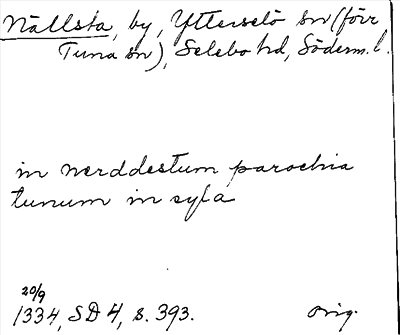 Nällsta, by, Ytterselö sn (förr
Tuna sn), Selebo hd, Söderm. l.
in nerddestum parochia
tunum in syla
20/9
1334, SD 4, s. 393. orig.